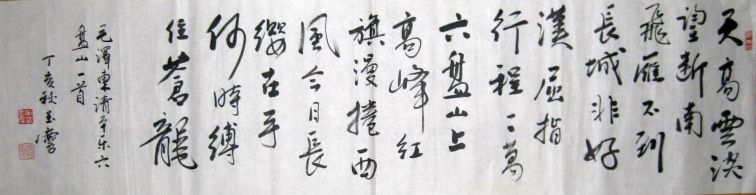 天高雲淡
望斷南
飛雁不到
長城非好
漢屈指
行程二萬
六盤山上
高峰紅
旗漫捲西
風今日長
纓在手
何時縛
住蒼龍
毛澤東清平樂六
盤山一首
丁亥秋玉